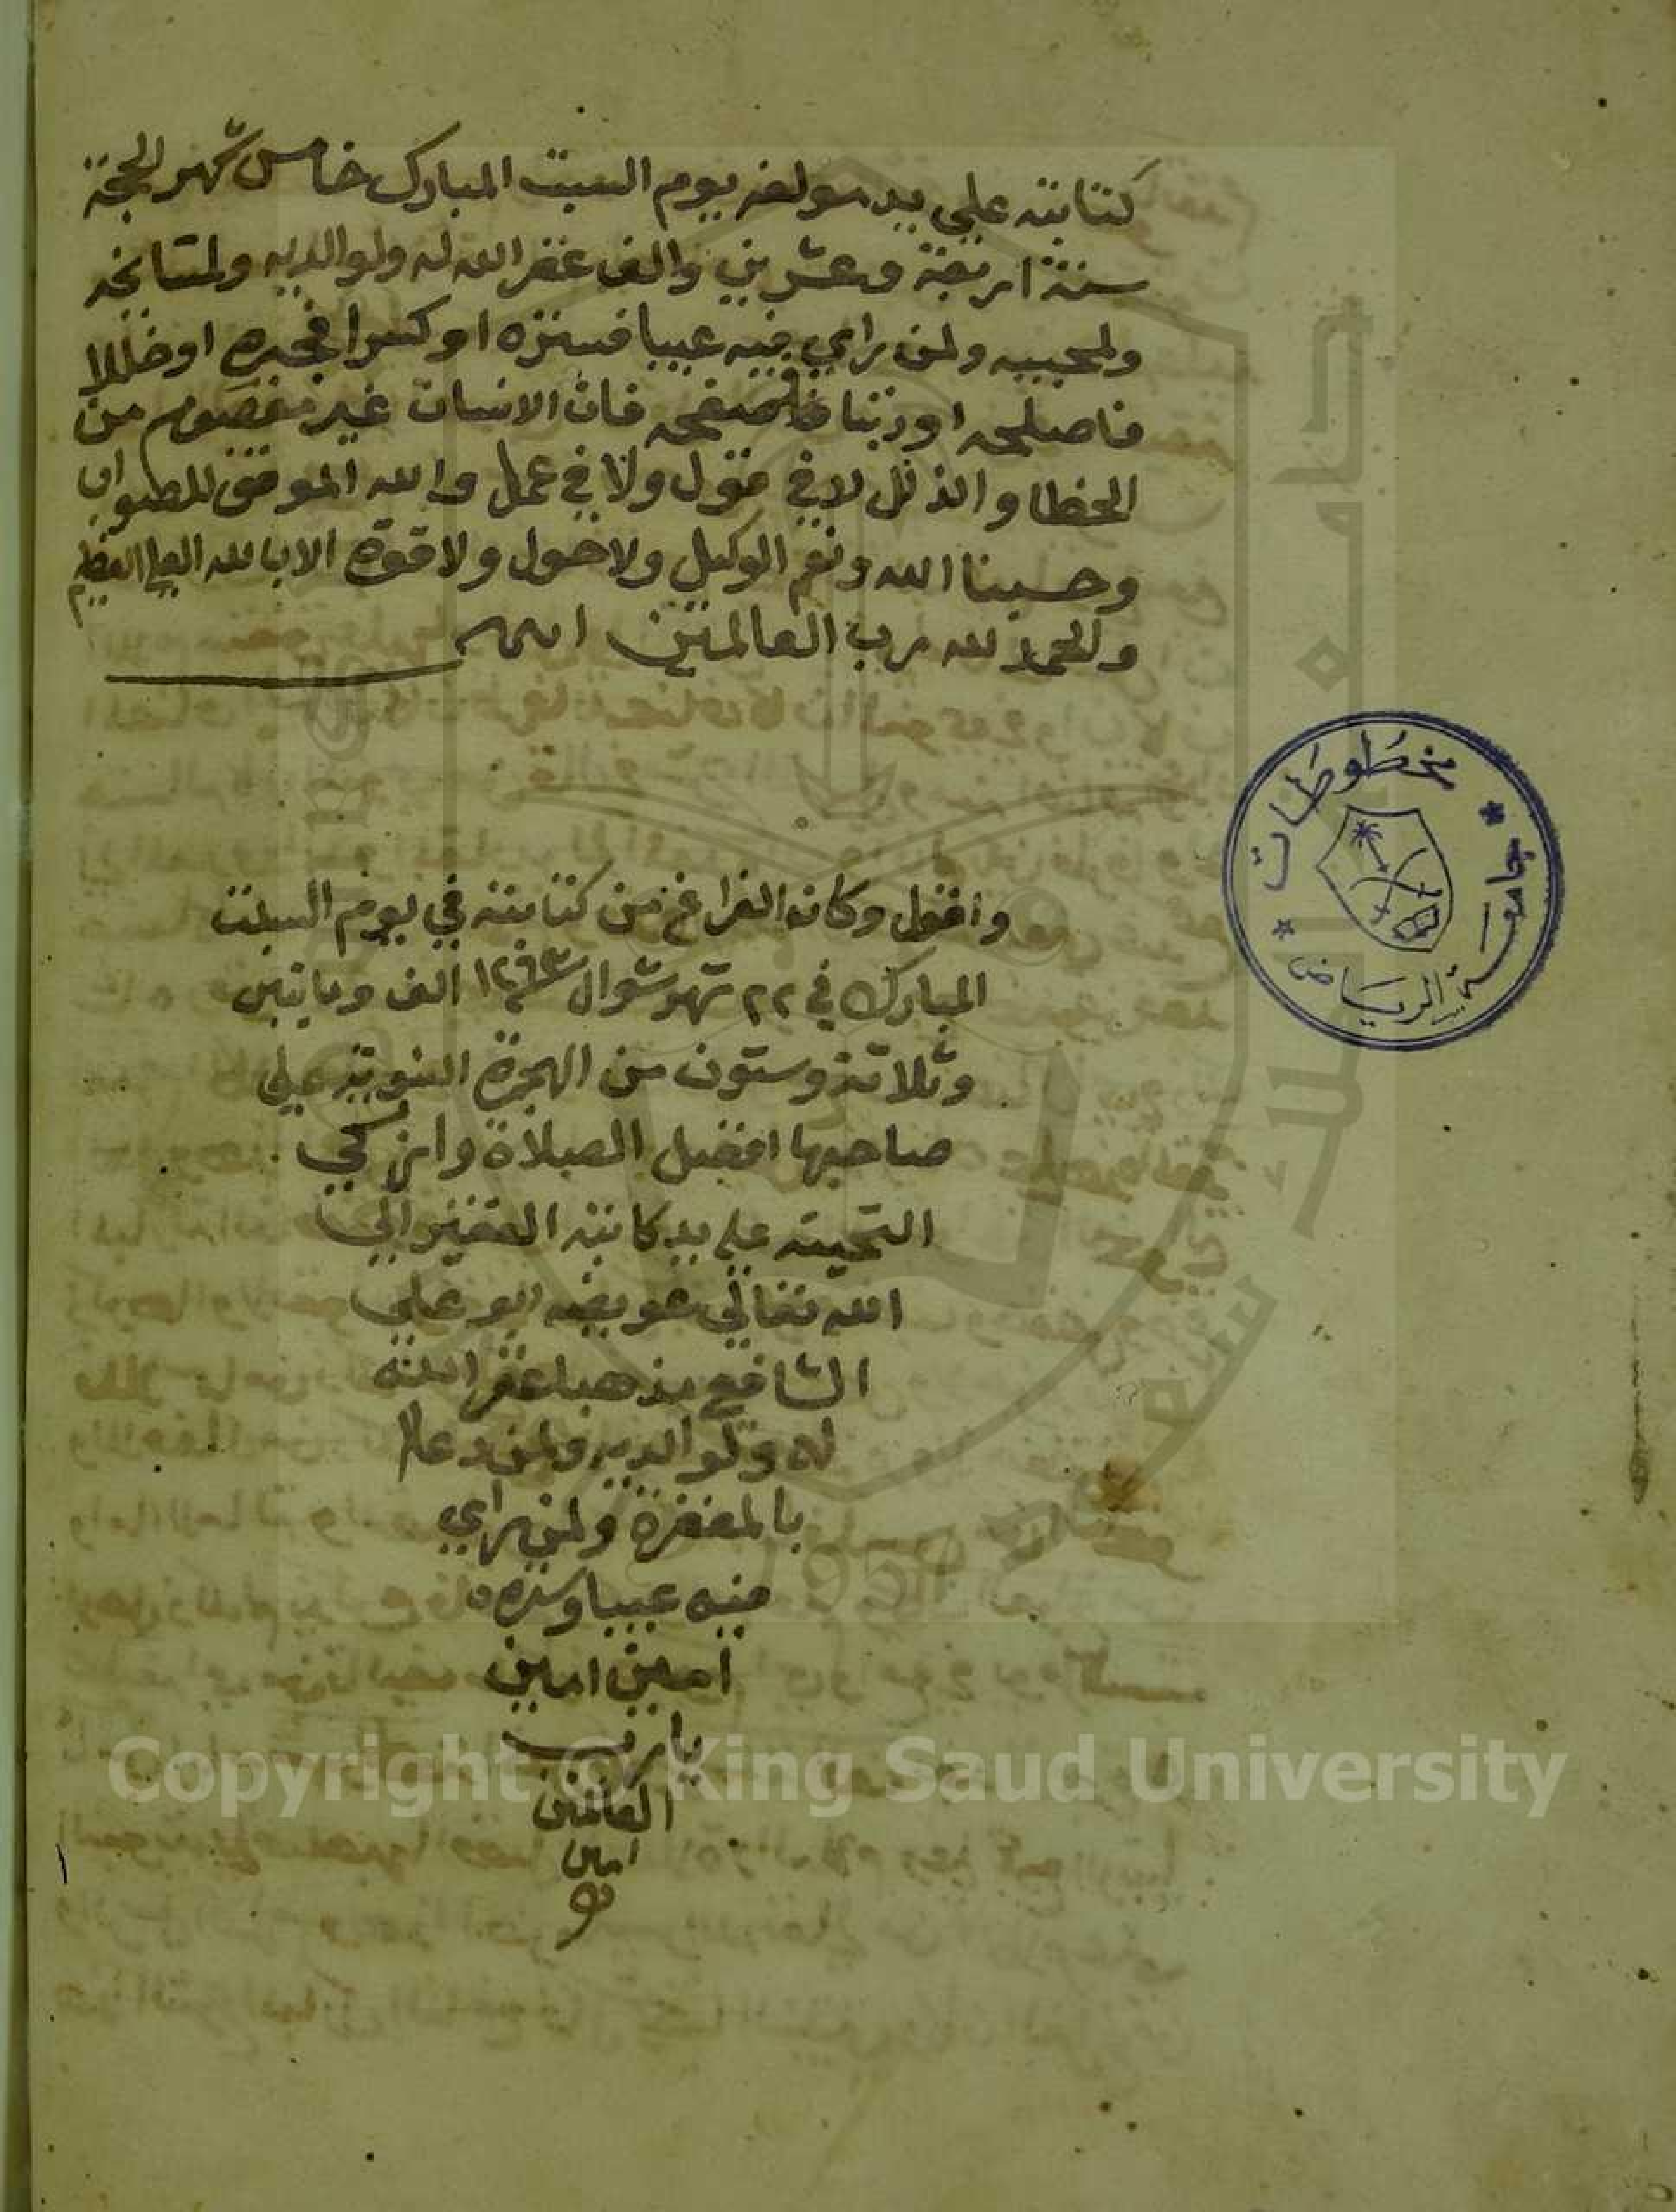 كتابته علي يد مولفه يوم السبت المبارك خامس شهر الحجة
سنة اربعة وعشرين والف غفر الله له ولوالديه ولمشايخه
ولمحبيه ولمن راي فيه عيبا فستره او كسرا فجبره او خللا
فاصلحه او ذنبا فصفحه فان الانسان غير معصوم من
الخطا والذلل لا في قول ولا في عمل والله الموفق للصواب
وحسبنا الله ونعم الوكيل ولا حول ولا قوة الا بالله العلي العظيم
والحمد لله رب العالمين
واقول وكان الفراغ من كتابته في يوم السبت
المبارك في ٢٢ شهر شوال ١٢٦٣ الف وماتين
وثلاثة وستون من الهجرة النبوية علي
صاحبها افضل الصلاة وازكي
التحيته علي يد كاتبه الفقير الي
الله تعالي ابو علي
الشافعي مذهبا غفر الله
له ولوالديه ولمن دعا له
بالمغفرة ولمن راي
فيه عيبا وستره
امين امين
يا رب
العالمين
امين
مخطوطات
جامعة الرياض
جامعة الملك سعود
1957
Copyright © King Saud University